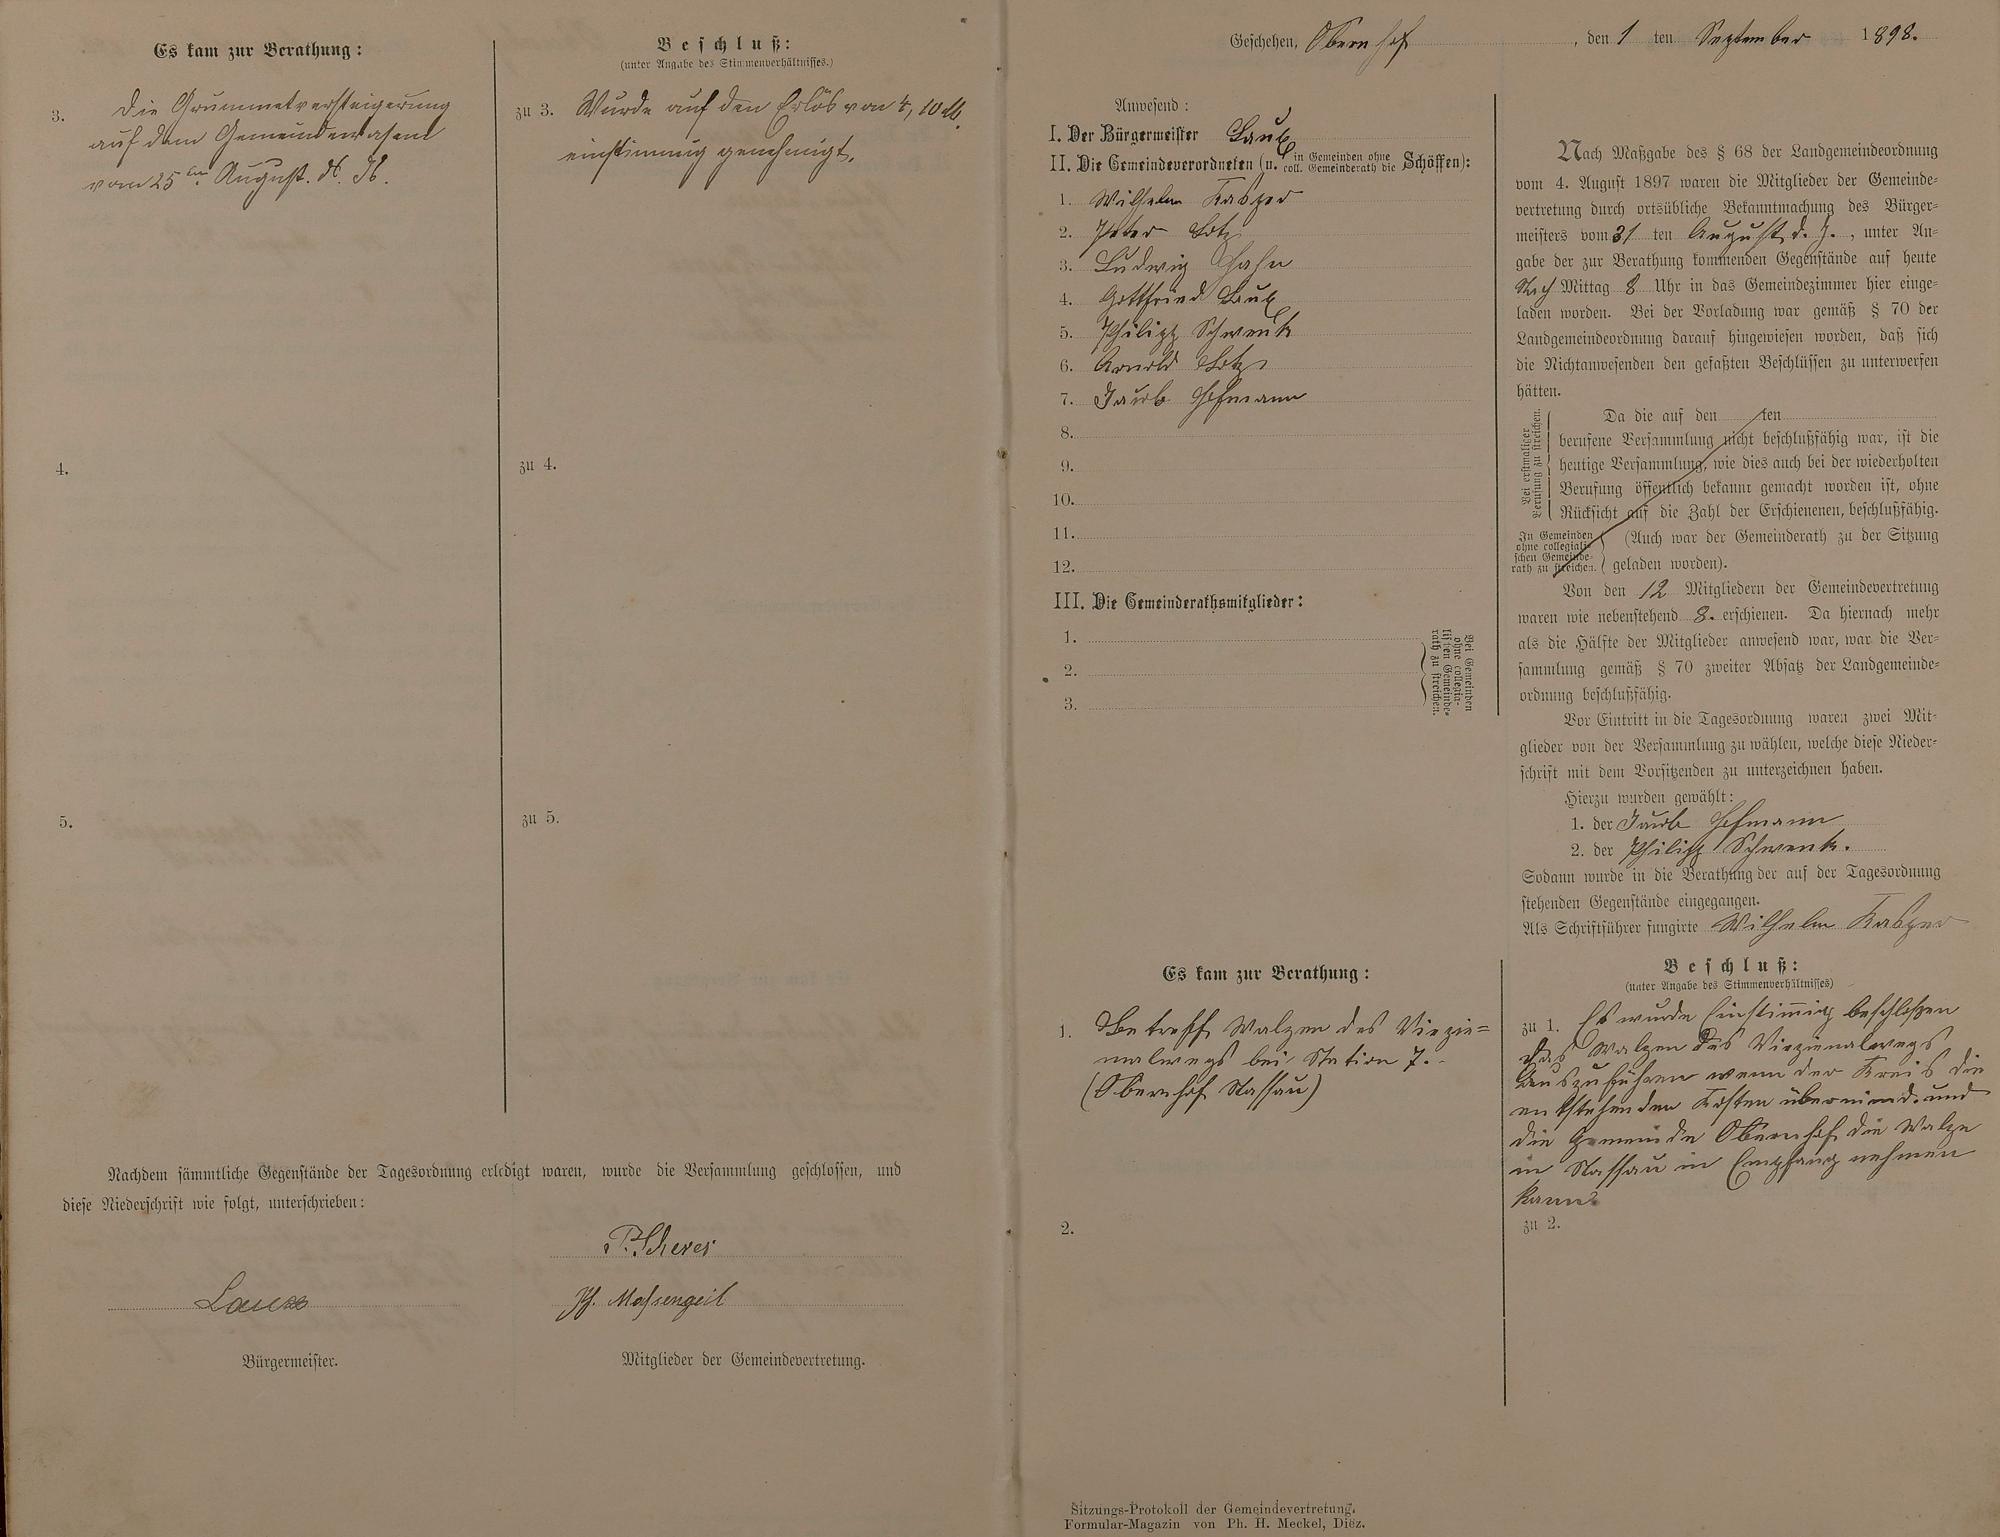 Es kam zur Berathung:
Beschluß:
(unter Angabe des Stimmenverhältnisses.)
3. Die Grummetversteigerung
auf dem Gemeindewasem
vom 25ten August d. Js.
zu 3. Wurde auf den Erlös von 4,10 M.
einstimmig genehmigt.
4.
zu 4.
5.
zu 5.
Nachdem sämmtliche Gegenstände der Tagesordnung erledigt waren, wurde die Versammlung geschlossen, und
diese Niederschrift wie folgt, unterschrieben:
P. Scherer
Laux
Ph. Massengeil
Bürgermeister.
Mitglieder der Gemeindevertretung.
Geschehen, Obernhof, den 1 ten September 1898.
Anwesend:
I. Der Bürgermeister Laux
II. Die Gemeindeverordneten (u. in Gemeinden ohne coll. Gemeinderath die Schöffen):
1. Wilhelm Kasper
2. Peter Lotz
3. Ludwig Hahn
4. Gottfried Laux
5. Philipp Schwenk
6. Arnold Lotz
7. Jacob Hofmann
8.
9.
10.
11.
12.
III. Die Gemeinderathsmitglieder:
1.
2.
3.
Bei Gemeinden
ohne collegia-
lischen Gemeinde-
rath zu streichen.
Nach Maßgabe des § 68 der Landgemeindeordnung
vom 4. August 1897 waren die Mitglieder der Gemeinde-
vertretung durch ortsübliche Bekanntmachung des Bürger-
meisters vom 31 ten August d. J., unter An-
gabe der zur Berathung kommenden Gegenstände auf heute
Nach Mittag 8 Uhr in das Gemeindezimmer hier einge-
laden worden. Bei der Vorladung war gemäß § 70 der
Landgemeindeordnung darauf hingewiesen worden, daß sich
die Nichtanwesenden den gefaßten Beschlüssen zu unterwerfen
hätten.
Bei erstmaliger
Berufung zu streichen.
Da die auf den ten
berufene Versammlung nicht beschlußfähig war, ist die
heutige Versammlung, wie dies auch bei der wiederholten
Berufung öffentlich bekannt gemacht worden ist, ohne
Rücksicht auf die Zahl der Erschienenen, beschlußfähig.
In Gemeinden
ohne collegiali-
schen Gemeinde-
rath zu streichen.
(Auch war der Gemeinderath zu der Sitzung
geladen worden).
Von den 12 Mitgliedern der Gemeindevertretung
waren wie nebenstehend 8. erschienen. Da hiernach mehr
als die Hälfte der Mitglieder anwesend war, war die Ver-
sammlung gemäß § 70 zweiter Absatz der Landgemeinde-
ordnung beschlußfähig.
Vor Eintritt in die Tagesordnung waren zwei Mit-
glieder von der Versammlung zu wählen, welche diese Nieder-
schrift mit dem Vorsitzenden zu unterzeichnen haben.
Hierzu wurden gewählt:
1. der Jacob Hofmann
2. der Philipp Schwenk.
Sodann wurde in die Berathung der auf der Tagesordnung
stehenden Gegenstände eingegangen.
Als Schriftführer fungirte Wilhelm Kasper
Es kam zur Berathung:
1. Betreff Walzen des Vizie=
nalwegs bei Station 7.
(Obernhof Nassau)
2.
Beschluß:
(unter Angabe des Stimmenverhältnisses)
zu 1. Es wurde Einstimig beschloßen
das Walzen des Viezinalwegs
Auszuführen wenn der Kreis die
entstehenden Kosten übernimd. und
die Gemeinde Obernhof die Walze
in Nassau in Empfang nehmen
kann
zu 2.
Sitzungs-Protokoll der Gemeindevertretung.
Formular-Magazin von Ph. H. Meckel, Diez.